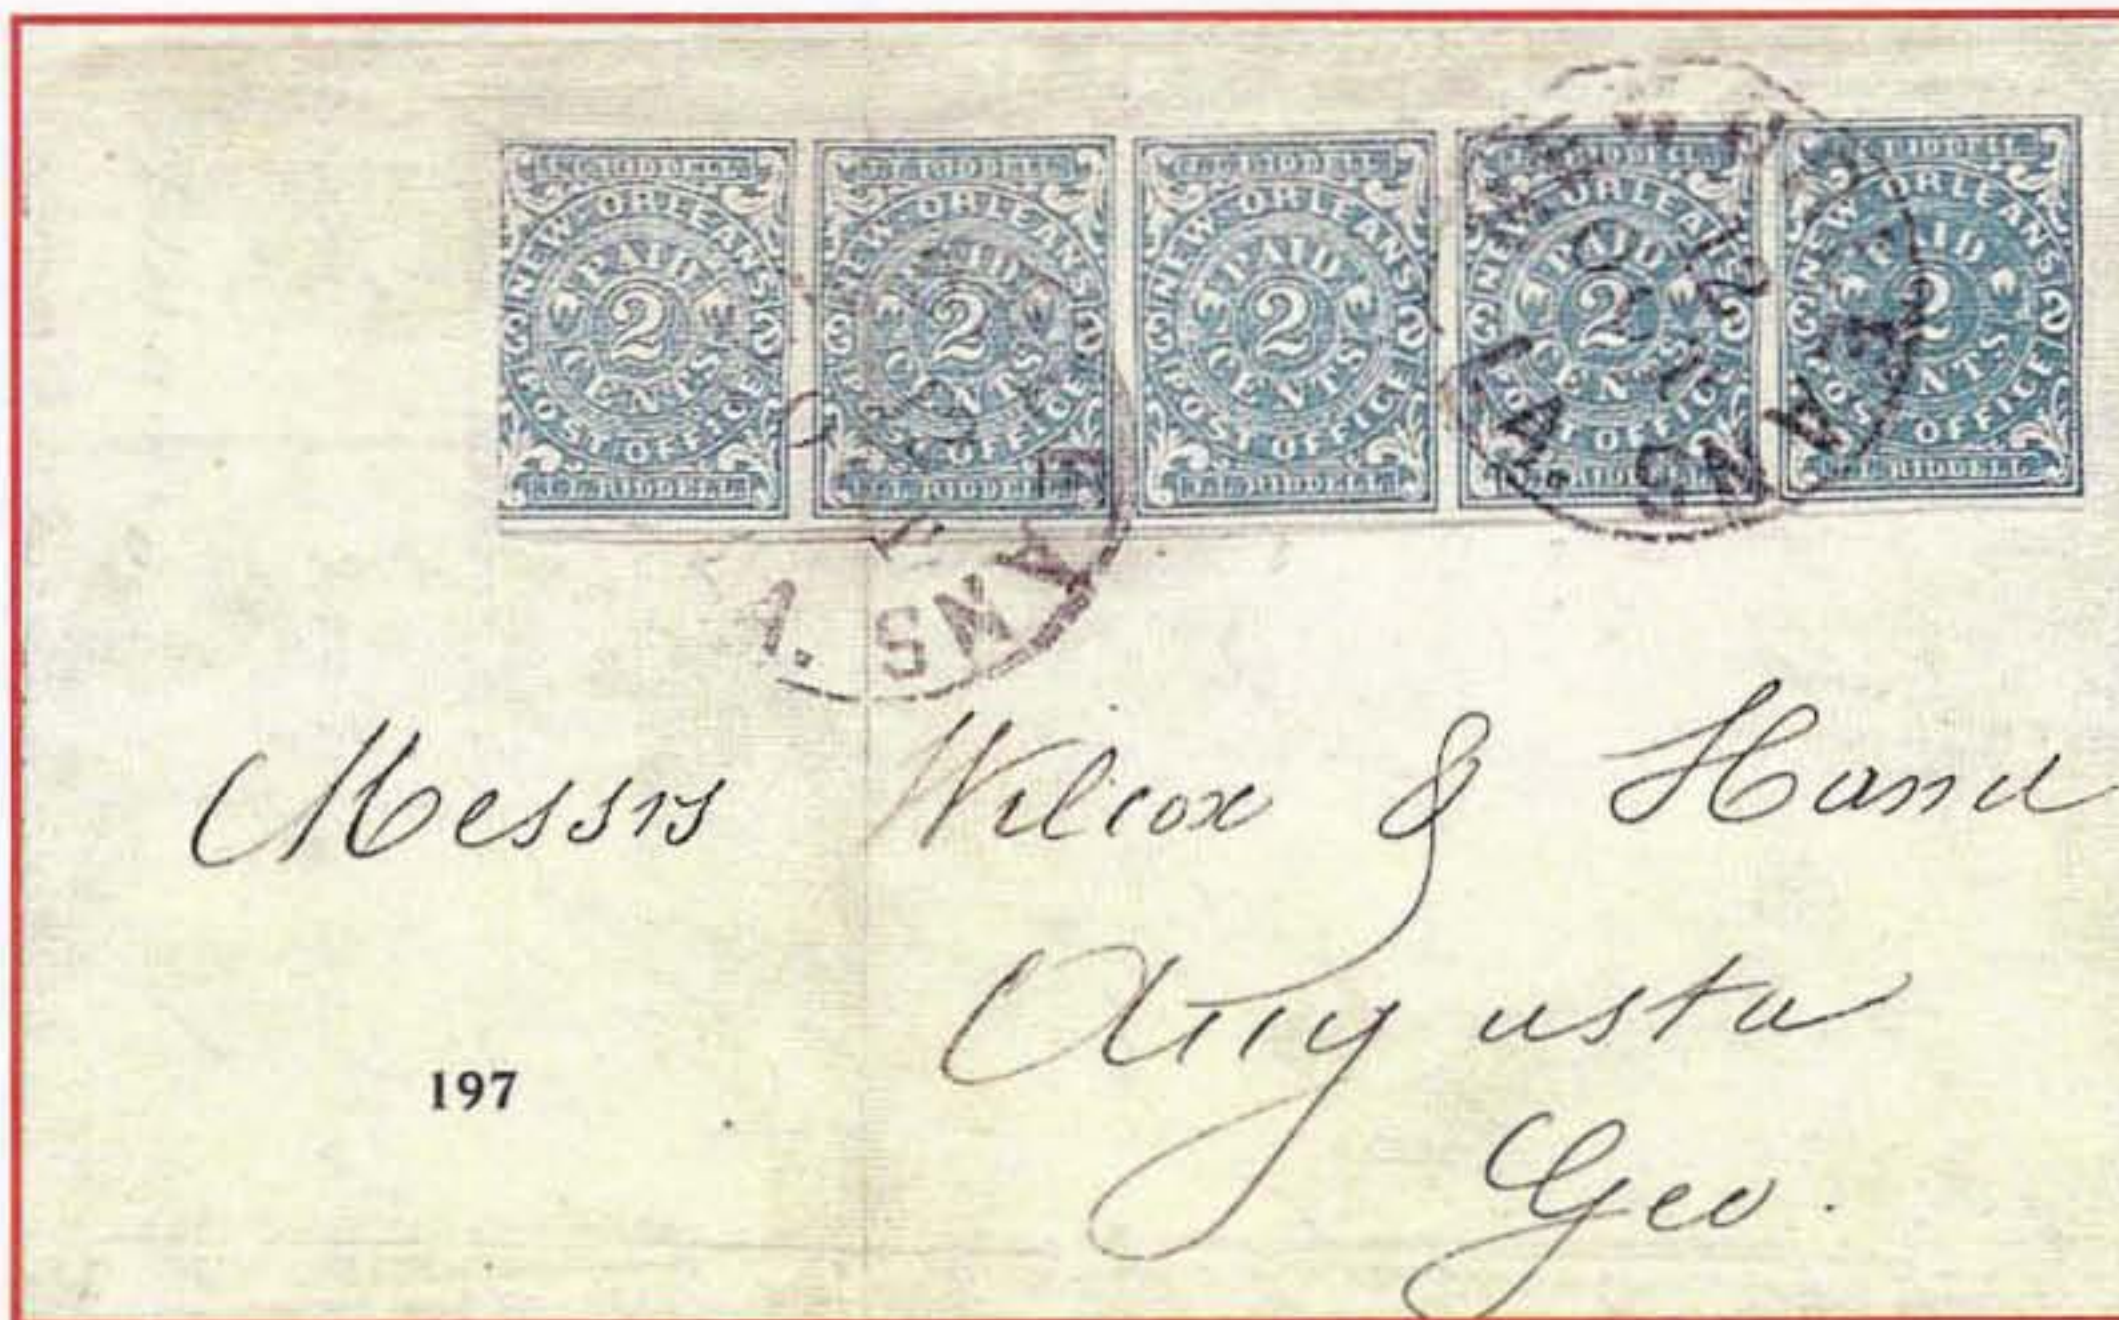 RIDDELL
NEW ORLEANS
PAID
2
CENTS
POST OFFICE
RIDDELL
RIDDELL
NEW ORLEANS
PAID
2
CENTS
POST OFFICE
RIDDELL
RIDDELL
NEW ORLEANS
PAID
2
CENTS
POST OFFICE
RIDDELL
RIDDELL
NEW ORLEANS
PAID
2
CENTS
POST OFFICE
RIDDELL
RIDDELL
NEW ORLEANS
PAID
2
CENTS
POST OFFICE
RIDDELL
Messrs Wilcox & Hand
Augusta
Geo.
197